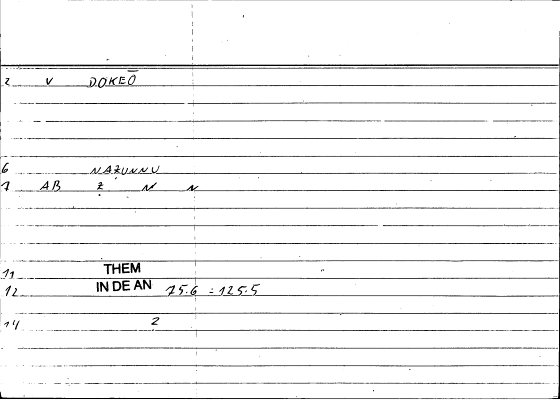 2 V DOKEŌ
6 NAẒUNNU
7 AB Ẓ N N
11 THEM
12 IN DE AN 75.6 = 125.5
14 2